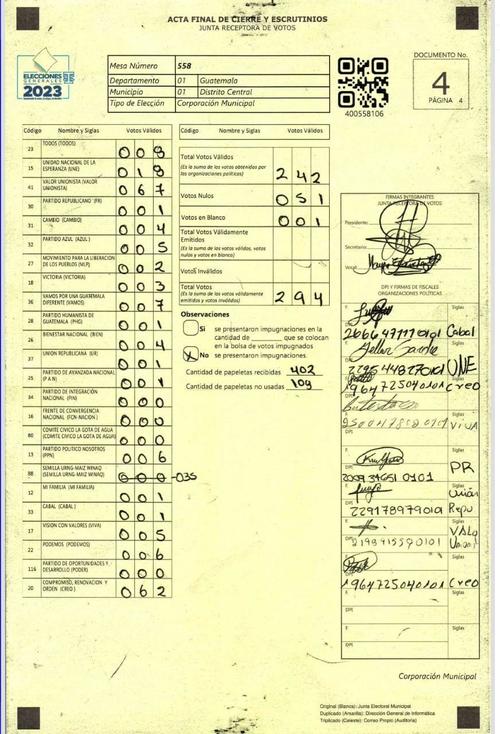 ACTA FINAL DE CIERRE Y ESCRUTINIOS
JUNTA RECEPTORA DE VOTOS
ELECCIONES
GENERALES
2023
Mesa Número 558
Departamento 01 Guatemala
Municipio 01 Distrito Central
Tipo de Elección Corporación Municipal
400558106
DOCUMENTO No.
4
PÁGINA 4
Código Nombre y Siglas Votos Válidos
23 TODOS (TODOS) 008
15 UNIDAD NACIONAL DE LA ESPERANZA (UNE) 018
41 VALOR UNIONISTA (VALOR UNIONISTA) 067
30 PARTIDO REPUBLICANO (PR) 001
31 CAMBIO (CAMBIO) 004
32 PARTIDO AZUL (AZUL) 005
27 MOVIMIENTO PARA LA LIBERACION DE LOS PUEBLOS (MLP) 002
18 VICTORIA (VICTORIA) 003
36 VAMOS POR UNA GUATEMALA DIFERENTE (VAMOS) 007
28 PARTIDO HUMANISTA DE GUATEMALA (PHG) 001
26 BIENESTAR NACIONAL (BIEN) 004
37 UNION REPUBLICANA (UR) 001
25 PARTIDO DE AVANZADA NACIONAL (P A N) 001
34 PARTIDO DE INTEGRACIÓN NACIONAL (PIN) 000
16 FRENTE DE CONVERGENCIA NACIONAL (FCN-NACION) 000
80 COMITÉ CIVICO LA GOTA DE AGUA (COMITÉ CIVICO LA GOTA DE AGUA) 000
13 PARTIDO POLITICO NOSOTROS (PPN) 006
88 SEMILLA URNG-MAIZ WINAQ (SEMILLA URNG-MAIZ WINAQ) 000 -035
12 MI FAMILIA (MI FAMILIA) 001
33 CABAL (CABAL) 001
17 VISION CON VALORES (VIVA) 005
22 PODEMOS (PODEMOS) 006
116 PARTIDO DE OPORTUNIDADES Y DESARROLLO (PODER) 000
20 COMPROMISO, RENOVACION Y ORDEN (CREO) 062
Código Nombre y Siglas Votos Válidos
Total Votos Válidos 242
(Es la suma de los votos obtenidos por las organizaciones políticas)
Votos Nulos 051
Votos en Blanco 001
Total Votos Válidamente Emitidos
(Es la suma de los votos válidos, votos nulos y votos en blanco)
Votos Inválidos
Total Votos 294
(Es la suma de votos válidamente emitidos y votos inválidos)
Observaciones
Si se presentaron impugnaciones en la cantidad de ______ que se colocan en la bolsa de votos impugnados
X No se presentaron impugnaciones
Cantidad de papeletas recibidas 402
Cantidad de papeletas no usadas 109
FIRMAS INTEGRANTES
JUNTA RECEPTORA DE VOTOS
Presidente
Secretario
Vocal
DPI Y FIRMAS DE FISCALES
ORGANIZACIONES POLÍTICAS
Siglas
Cabal
UNE
1964725040101 Creo
VIVA
PR
2291789790101 Repu
VALO
1964725040101 Creo
Corporación Municipal
Original (Blanco): Junta Electoral Municipal
Duplicado (Amarillo): Dirección General de Informática
Triplicado (Celeste): Correo Propio (Auditoría)